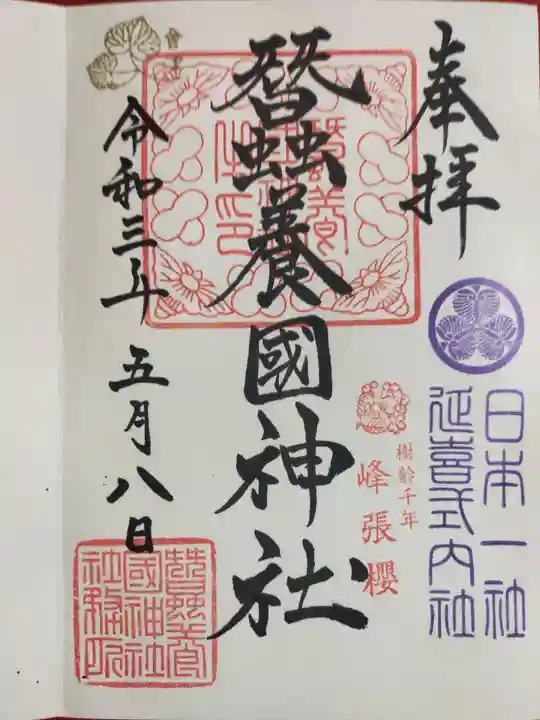 奉拝
日本一社
延喜式内社
樹齢千年
峰張櫻
蠶養國神社
蠶養國神社之印
令和三年五月八日
蠶養國神社務所